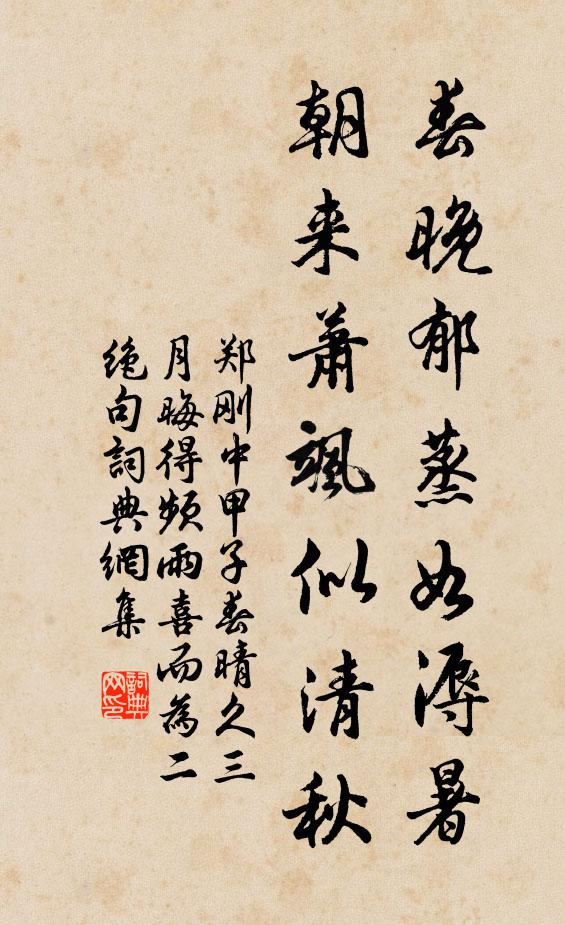 春晚郁蒸如溽暑
朝来萧飒似清秋
郑刚中甲子春晴久三
月晦得频雨喜而為二
绝句詞典網集
詞典网印